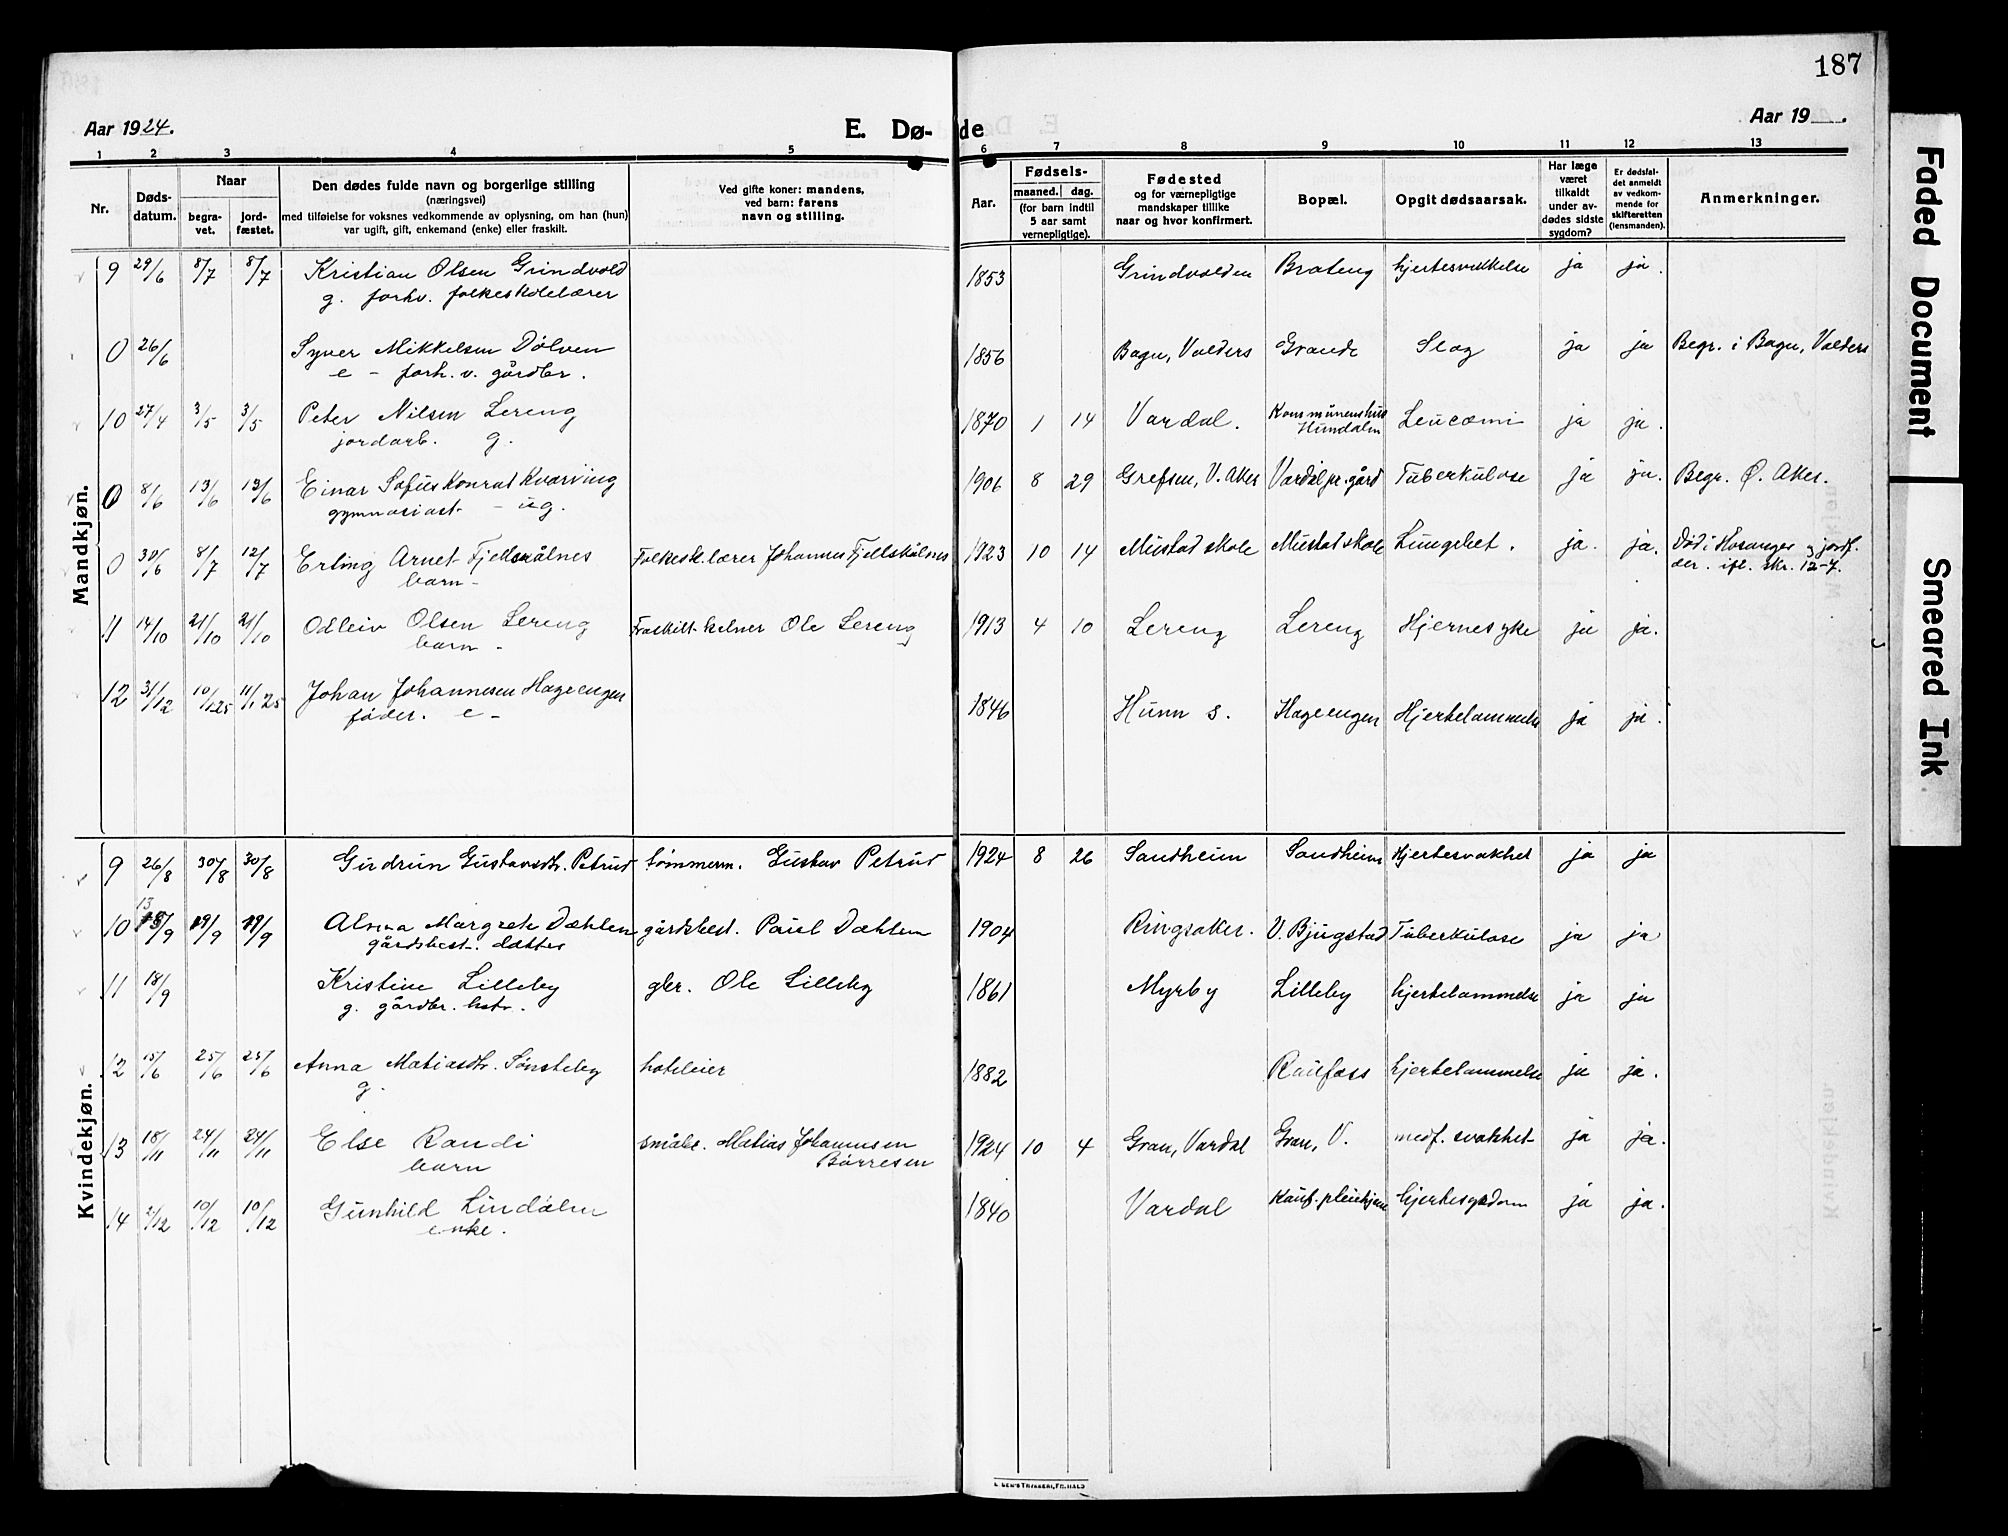 187
Aar 1924.
E. Dø-
de
Aar 19 .
1 2 3 4 5 6 7 8 9 10 11 12 13
Nr.
Døds-
datum.
Naar
begra-
vet.
jord-
fæstet.
Den dødes fulde navn og borgerlige stilling
(næringsvei)
med tilføielse for voksnes vedkommende av oplysning, om han (hun)
var ugift, gift, enkemand (enke) eller fraskilt.
Ved gifte koner: mandens,
ved barn: farens
navn og stilling.
Aar.
Fødsels-
maaned. dag.
(for barn indtil
5 aar samt
vernepligtige).
Fødested
og for værnepligtige
mandskaper tillike
naar og hvor konfirmert.
Bopæl.
Opgit dødsaarsak.
Har læge
været
tilkaldt
under av-
dødes sidste
sygdom?
Er dødsfal-
det anmeldt
av vedkom-
mende for
skifteretten
(lensmanden).
Anmerkninger.
Mandkjøn.
9 29/6 8/7 8/7 Kristian Olsen Grindvold 1853 Grindvolden Brateng hjertesvekkelse ja ja.
g. forhv. folkeskolelærer
0 26/6 Syver Mikkelsen Dølven 1856 Bagn, Valders Grande Slag ja ja Begr. i Bagn, Valders
e - forh. v. gårdbr.
10 27/4 3/5 3/5 Peter Nilsen Lereng 1870 1 14 Vardal. Kommunenshus Hundalen Leucæmi ja ja.
jordarb. g.
0 8/6 13/6 13/6 Einar Sofus Konrat Kvarving 1906 8 29 Grefsen, V. Aker Vardal pr.gård Tuberkulose ja ja. Begr. Ø. Aker.
gymnasiast - ug.
0 30/6 8/7 12/7 Erling Arnet Fjellskålnes Folkesk.lærer Johannes Fjellskålnes 1923 10 14 Mustad skole Mustad skole Lungebet. ja. ja. Død i Hosanger og jordf.
barn - der. ifl. skr. 12-7.
11 14/10 21/10 21/10 Odleiv Olsen Lereng Fraskilt kelner Ole Lereng 1913 4 10 Lereng Lereng Hjernesyke ja ja.
barn -
12 31/12 10/1 25 11/1 25 Johan Johannesen Hageengen 1846 Hunn s. Hageengen Hjertelammelse ja ja.
føder. e -
Kvindekjøn.
9 26/8 30/8 30/8 Gudrun Gustavsdtr. Petrud tømmerm. Gustav Petrud 1924 8 26 Sandheim Sandheim Hjertesvakhet ja ja
10 13/9 19/9 19/9 Alma Margrete Dæhlen gårdsbest. Paul Dæhlen 1904 Ringsaker. V. Bjugstad Tuberkulose ja ja
gårdsbest. datter
11 18/9 Kristine Lilleby gbr. Ole Lilleby 1861 Myrby Lilleby hjertelammelse ja ja
g. gårdbr. hstr.
12 15/6 25/6 25/6 Anna Matiasdtr. Sønsteby hoteleier 1882 Raufoss hjertelammelse ja ja.
g.
13 18/11 24/11 24/11 Else Randi småbr. Matias Johannesen 1924 10 4 Gran, Vardal Gran, V. medf. svakhet ja ja.
barn Børresen
14 2/12 10/12 10/12 Gunhild Lindalen 1840 Vardal Rauf. pleiehjem hjertesygdom ja ja.
enke.
Faded Document
Smeared Ink